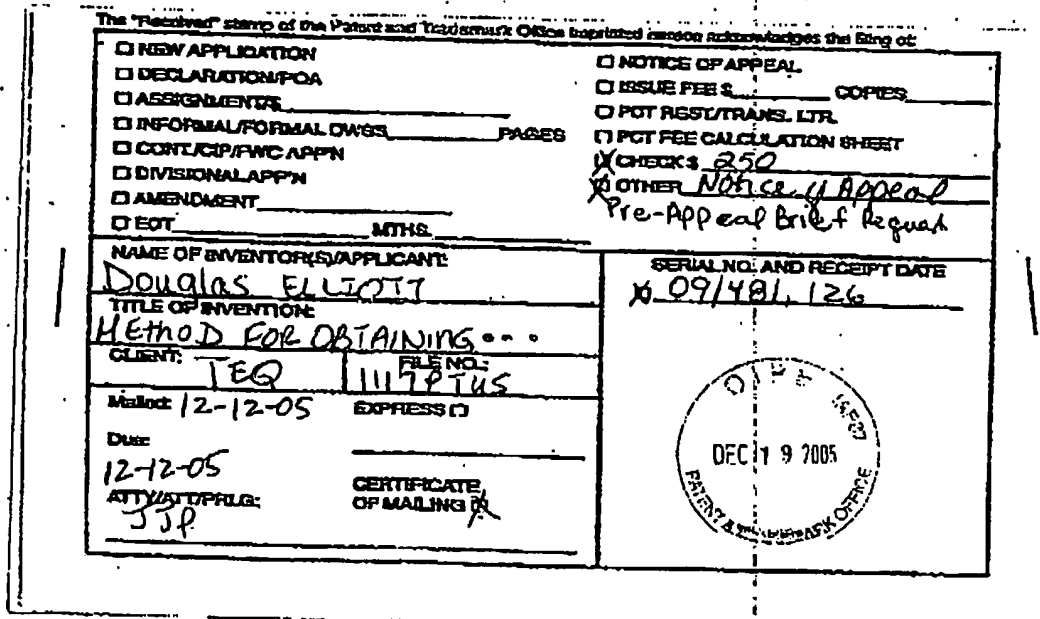 The "Received" stamp of the Patent and Trademark Office imprinted hereon acknowledges the filing of:
☐ NEW APPLICATION
☐ DECLARATION/POA
☐ ASSIGNMENT/S
☐ INFORMAL/FORMAL DWGS PAGES
☐ CONT./CIP/FWC APP'N
☐ DIVISIONAL APP'N
☐ AMENDMENT
☐ EOT MTHS.
☐ NOTICE OF APPEAL
☐ ISSUE FEE $ COPIES
☐ PCT RQST/TRANS. LTR.
☐ PCT FEE CALCULATION SHEET
☒ CHECK $ 250
☒ OTHER Notice of Appeal
Pre-Appeal Brief Request
NAME OF INVENTOR(S)/APPLICANT:
Douglas ELLIOTT
TITLE OF INVENTION:
METHOD FOR OBTAINING...
CLIENT: TEQ
FILE NO.: 1117PTUS
Mailed: 12-12-05 EXPRESS ☐
Due:
12-12-05
ATTY/ATT/PRLG:
JJP
CERTIFICATE
OF MAILING ☒
SERIAL NO. AND RECEIPT DATE
09/481,126
OIPE
DEC 19 2005
PATENT & TRADEMARK OFFICE